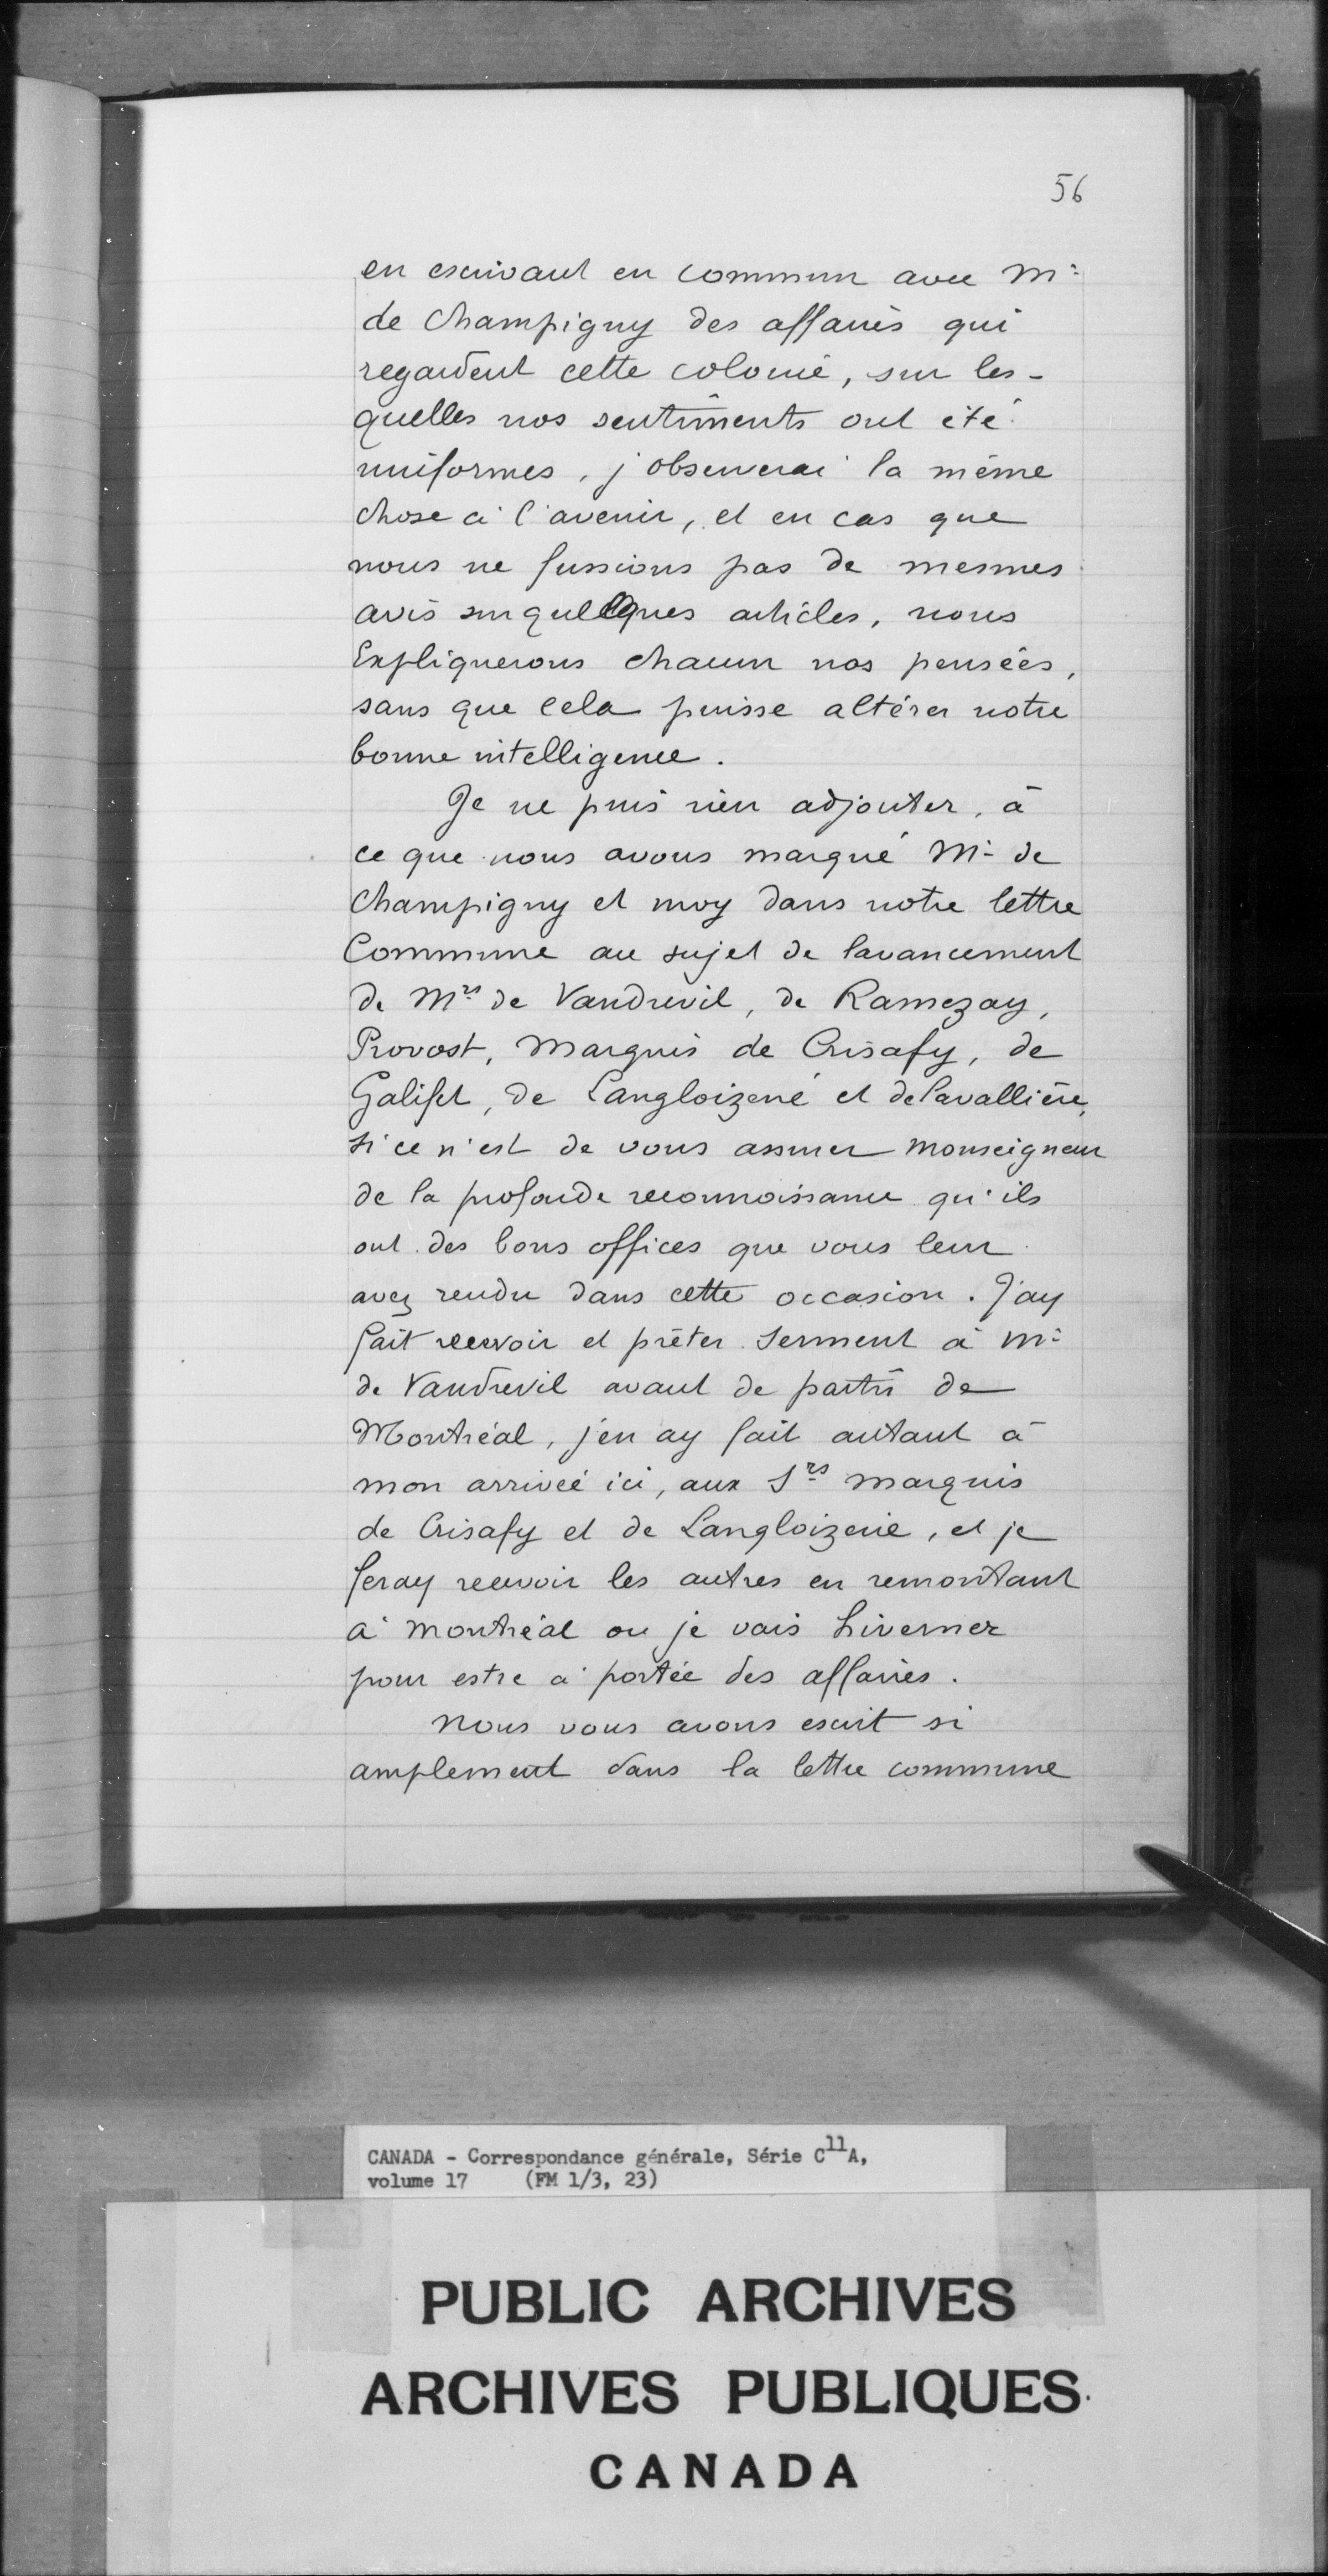 56
en escrivant en commun avec Mr
de Champigny des affaires qui
regardent cette colonie, sur les-
quelles nos sentiments ont été
uniformes, j'observerai la même
chose à l'avenir, et en cas que
nous ne fussions pas de mesmes
avis sur quelques articles, nous
Expliquerons chacun nos pensées,
sans que cela puisse altérer notre
bonne intelligence.
Je ne puis rien adjouter, à
ce que nous avons marqué Mr de
Champigny et moy dans notre lettre
Commune au sujet de lavancement
de Mrs de Vaudreuil, de Ramezay,
Provost, Marquis de Crisafy, de
Galifet, de Langloizerie et de Lavallière,
si ce n'est de vous assurer Monseigneur
de la profonde reconnoissance qu'ils
ont des bons offices que vous leur
avez rendu dans cette occasion. J'ay
fait recevoir et prêter serment à Mr
de Vaudreuil avant de partir de
Montréal, j'en ay fait autant à
mon arrivée ici, aux Srs Marquis
de Crisafy et de Langloizerie, et je
feray recevoir les autres en remontant
à Montréal ou je vais hiverner
pour estre à portée des affaires.
Nous vous avons escrit si
amplement dans la lettre commune
CANADA - Correspondance générale, Série C11A,
volume 17 (FM 1/3, 23)
PUBLIC ARCHIVES
ARCHIVES PUBLIQUES
CANADA